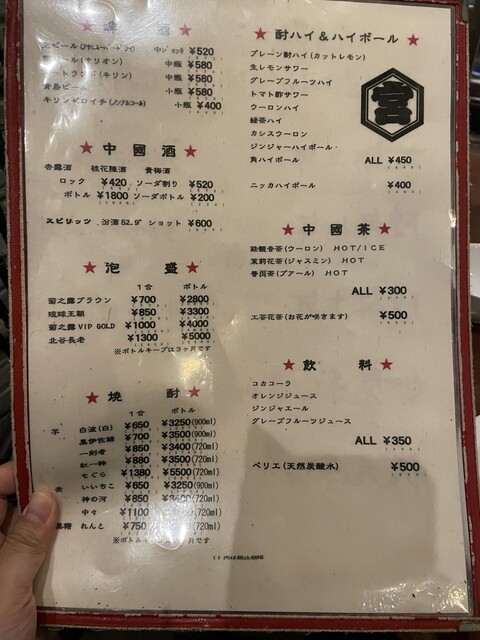 ★ 啤 酒 ★
中ジョッキ ¥520
中瓶 ¥580
ートランド(キリン) 中瓶 ¥580
青島ビール 小瓶 ¥580
キリンゼロイチ(ノンアルコール) 小瓶 ¥400
★ 中國酒 ★
杏露酒 桂花陳酒 青梅酒
ロック ¥420 ソーダ割り ¥520
ボトル ¥1800 ソーダボトル ¥200
スピリッツ 汾酒52.9° ショット ¥600
★ 泡 盛 ★
1合 ボトル
菊之露ブラウン ¥700 ¥2800
琉球王朝 ¥850 ¥3300
菊之露VIP GOLD ¥1000 ¥4000
北谷長老 ¥1300 ¥5000
※ボトルキープは3ヶ月です
★ 焼 酎 ★
1合 ボトル
芋 白波(白) ¥650 ¥3250(900ml)
黒伊佐錦 ¥700 ¥3500(900ml)
一刻者 ¥850 ¥3400(720ml)
紅一神 ¥880 ¥3500(720ml)
七ぐら ¥1380 ¥5500(720ml)
麦 いいちこ ¥650 ¥3250(900ml)
神の河 ¥850 (720ml)
中々 ¥1100 (720ml)
黒糖 れんと ¥750 (720ml)
※ボトルキ です
★ 酎ハイ&ハイボール ★
プレーン酎ハイ(カットレモン)
生レモンサワー
グレープフルーツハイ
トマト酢サワー
ウーロンハイ
緑茶ハイ
カシスウーロン
ジンジャーハイボール
角ハイボール ALL ¥450
ニッカハイボール ¥400
宮
★ 中國茶 ★
鉄観音茶(ウーロン) HOT/ICE
茉莉花茶(ジャスミン) HOT
普洱茶(プアール) HOT
ALL ¥300
工芸花茶(お花が咲きます) ¥500
★ 飲 料 ★
コカコーラ
オレンジジュース
ジンジャエール
グレープフルーツジュース
ALL ¥350
ペリエ(天然炭酸水) ¥500
( )内は税込価格